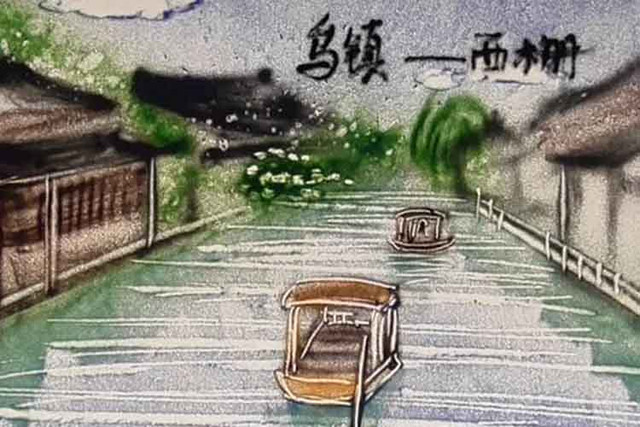 乌镇—西栅